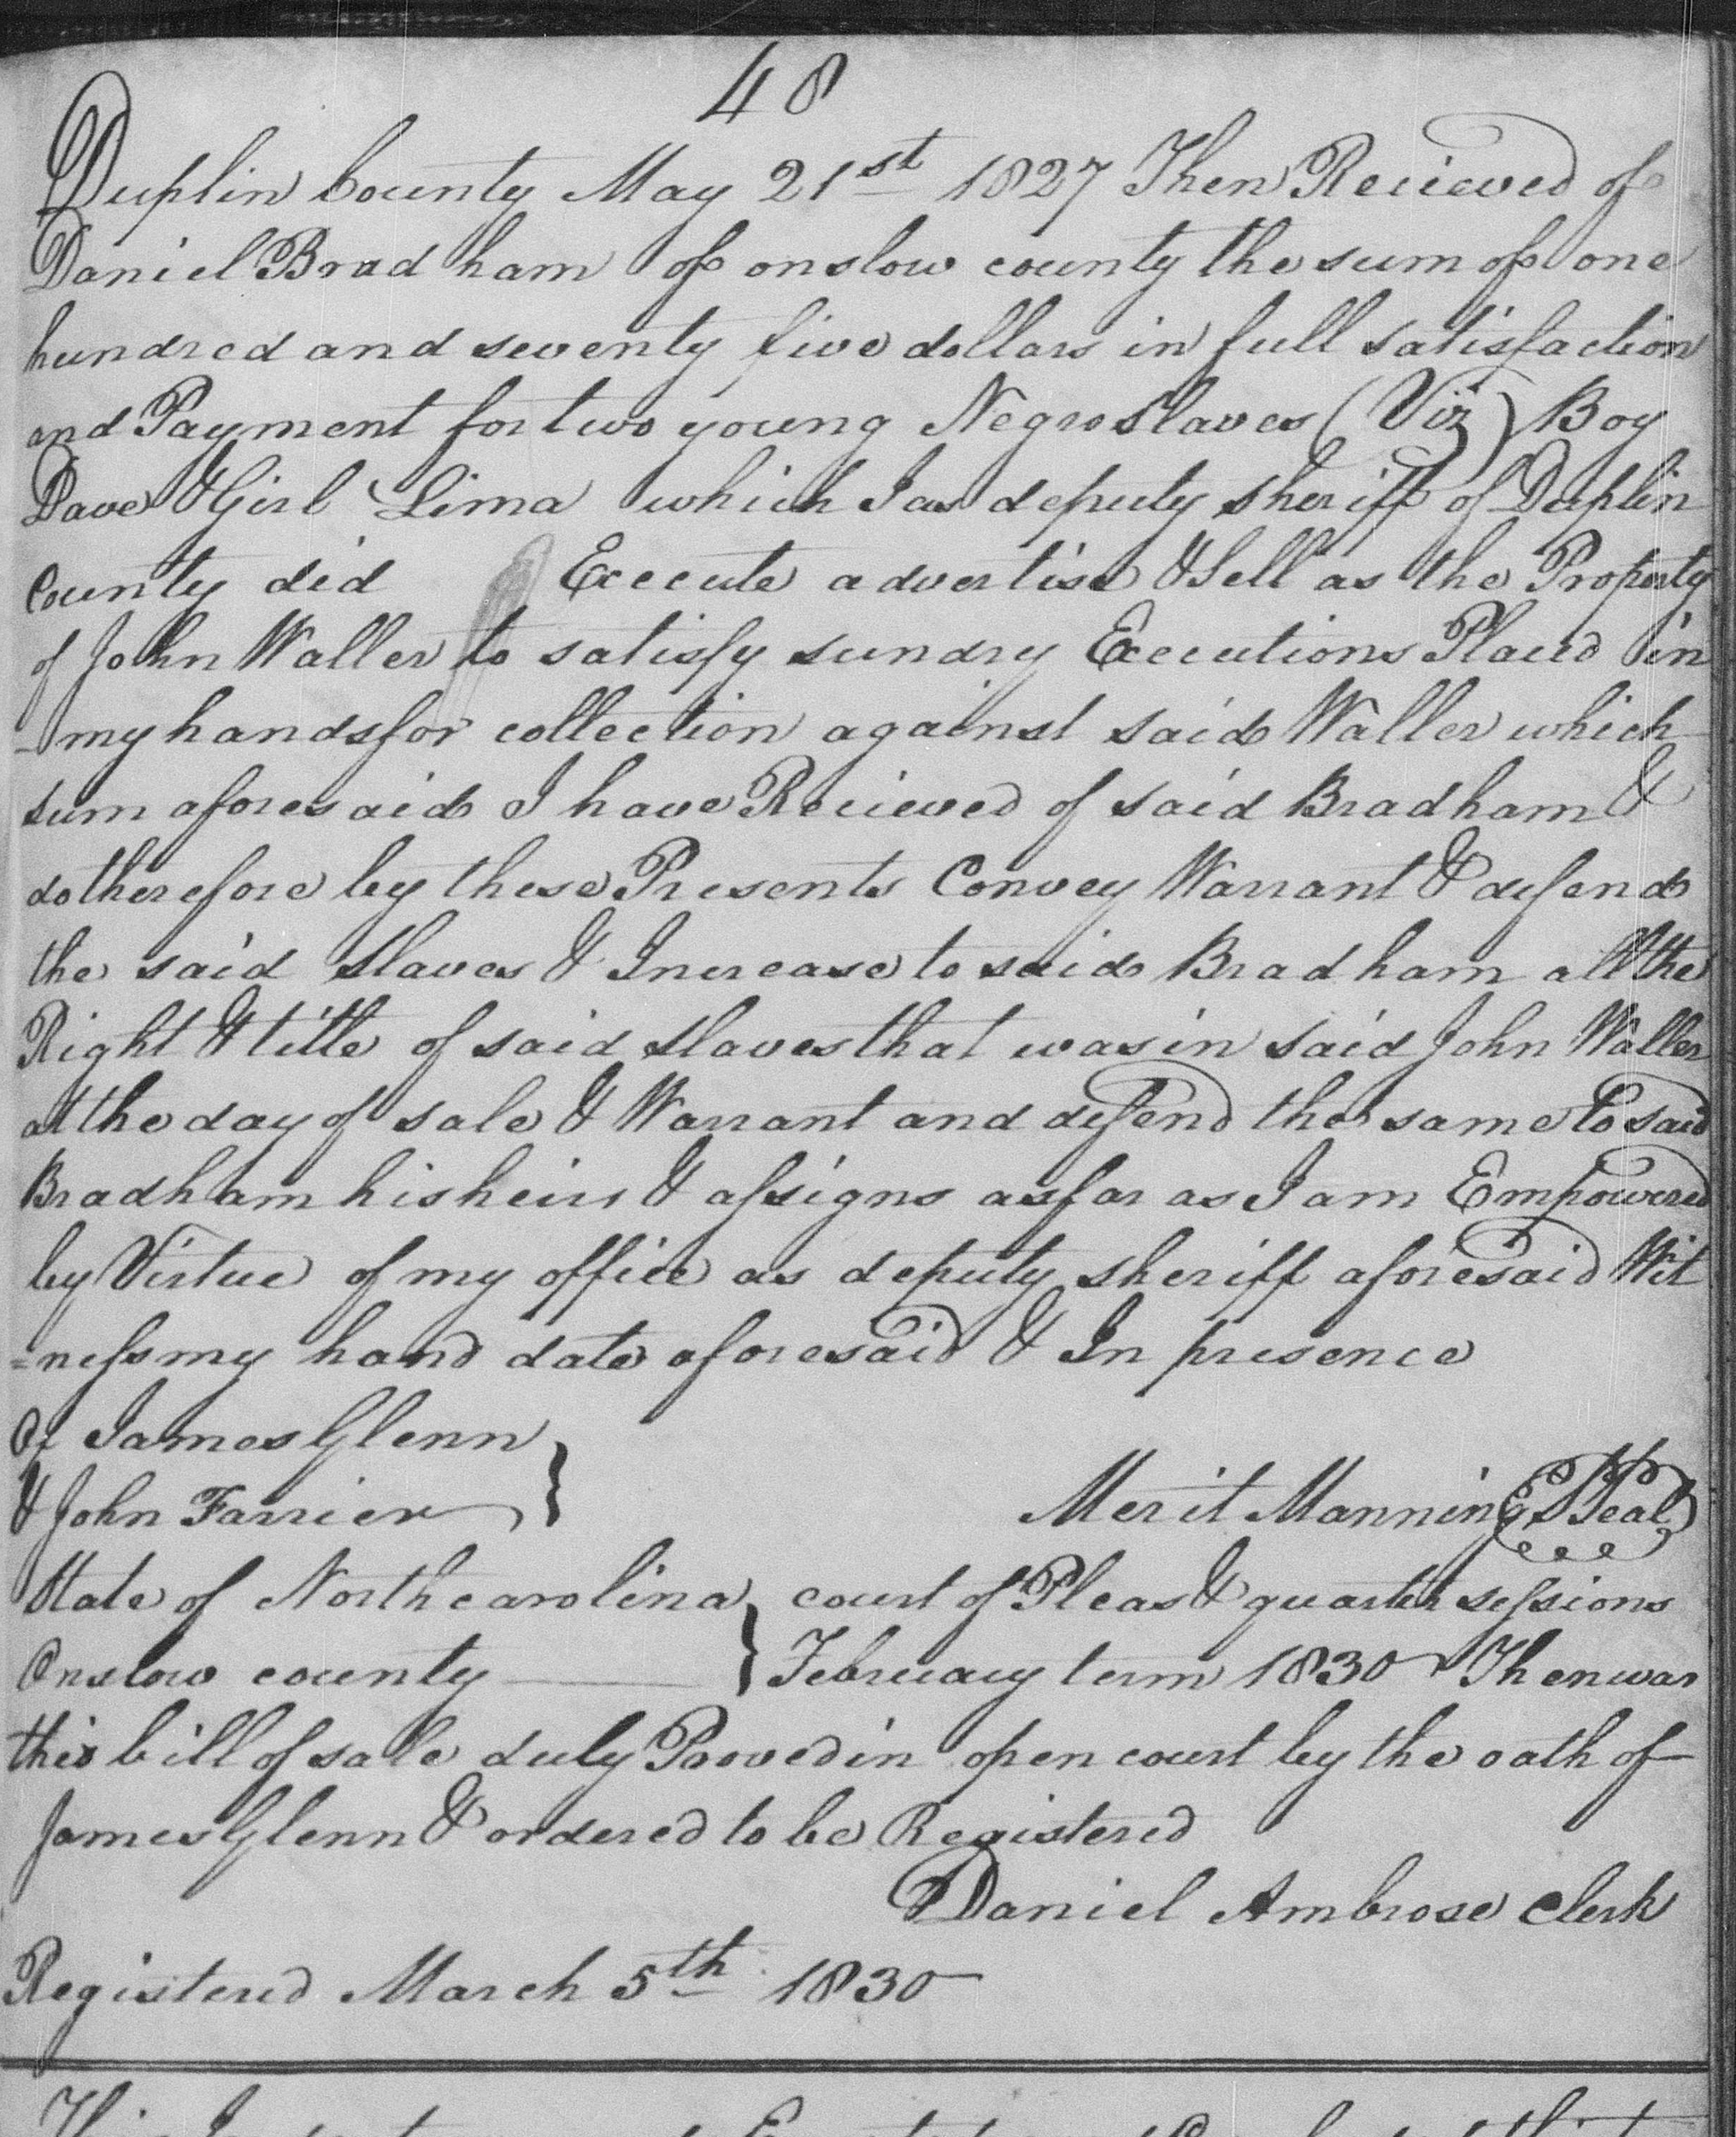 48
Duplin County May 21st 1827 Then Recieved of
Daniel Bradham of onslow county the sum of one
hundred and seventy five dollars in full satisfaction
and Payment for two young Negro Slaves (Viz) Boy
Dave & Girl Lima which I as deputy sheriff of Duplin
County did Execute advertise & Sell as the Property
of John Waller to satisfy sundry Executions Placed in
my hands for collection against said Waller which
sum aforesaid I have Recieved of said Bradham &
do therefore by these Presents Convey Warrant & defend
the said slaves & Increase to said Bradham all the
Right & title of said slaves that was in said John Waller
at the day of sale & Warrant and defend the same to said
Bradham his heirs & assigns as far as I am Empowered
by Virtue of my office as deputy sheriff aforesaid Wit
=ness my hand date aforesaid & In presence
Of James Glenn
& John Farrier } Merit Manning Seal
State of North carolina } court of Pleas & quarter sessions
Onslow county } February term 1830 Then was
this bill of sale duly Prooved in open court by the oath of
James Glenn & ordered to be Registered
Daniel Ambrose Clerk
Registered March 5th 1830